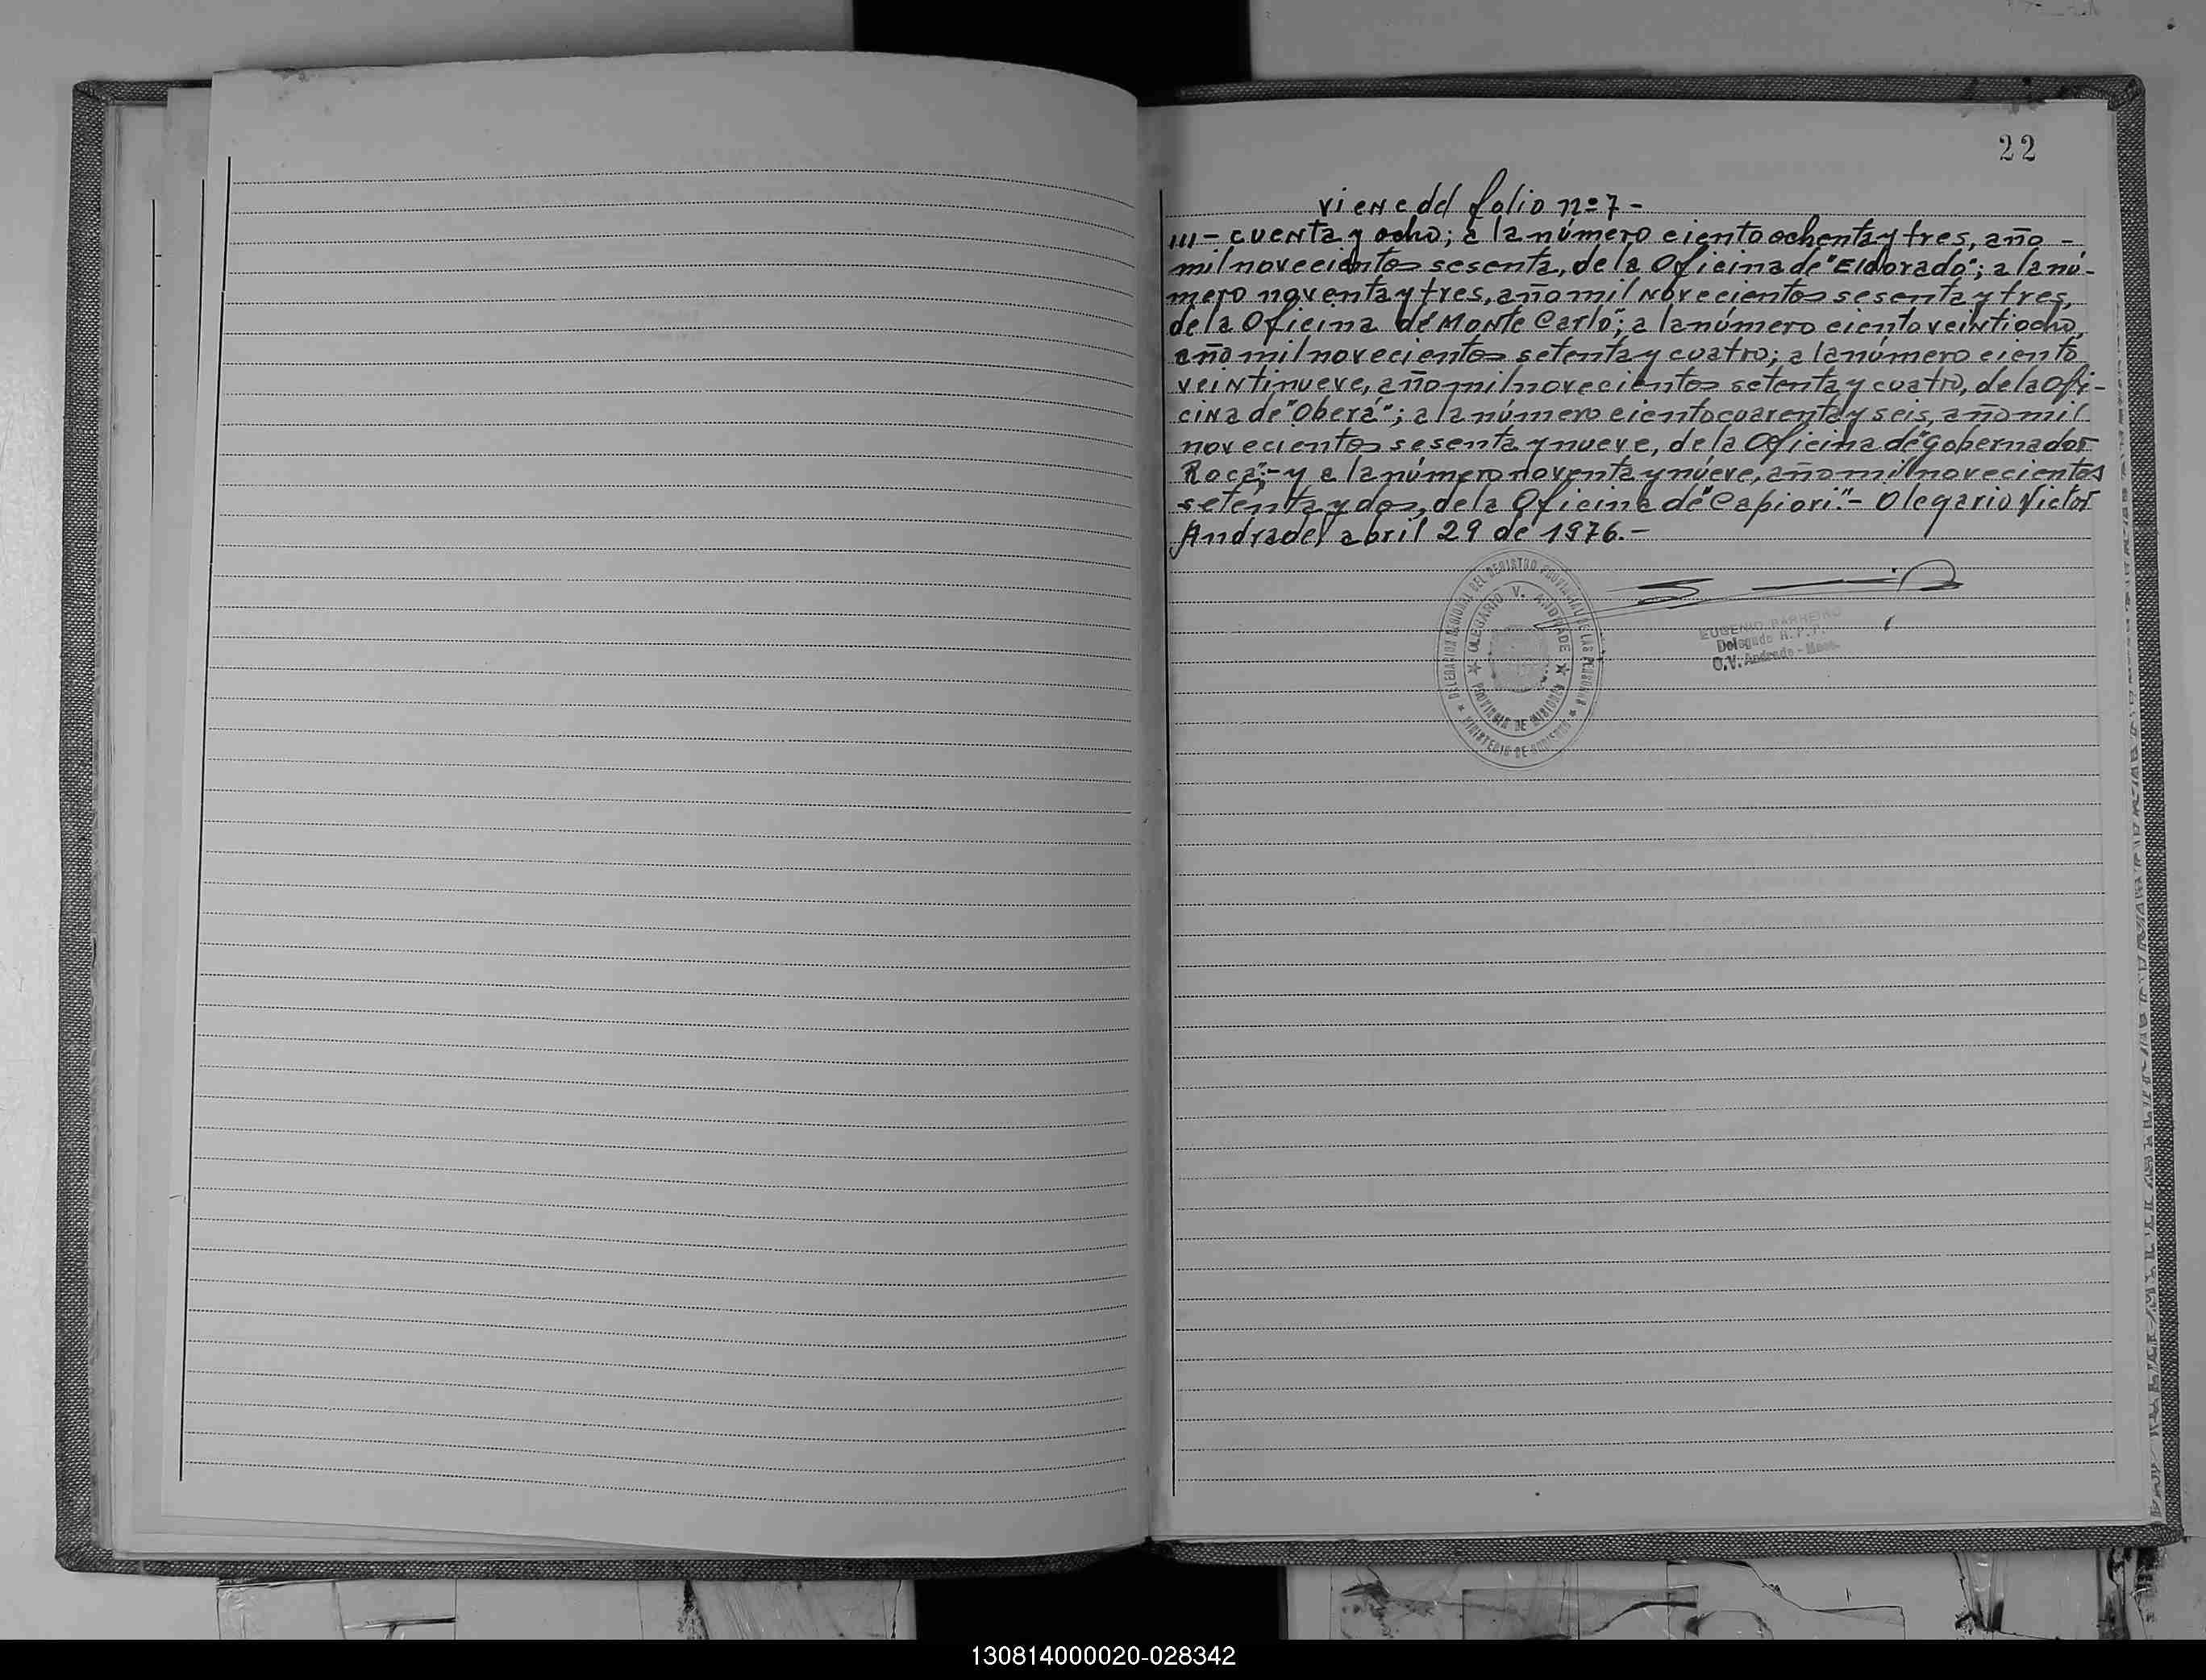 22
viene del folio nº 7 -
III - cuenta y ocho; a la número ciento ochenta y tres, año -
mil novecientos sesenta, de la Oficina de "Eldorado"; a la nú-
mero noventa y tres, año mil novecientos sesenta y tres,
de la Oficina de "Monte Carlo"; a la número ciento veintiocho,
año mil novecientos setenta y cuatro; a la número ciento
veintinueve, año mil novecientos setenta y cuatro, de la Ofi-
cina de "Oberá"; a la número ciento cuarenta y seis, año mil
novecientos sesenta y nueve, de la Oficina de "Gobernador
Roca"; - y a la número noventa y nueve, año mil novecientos
setenta y dos, de la Oficina de "Capiori". - Olegario Victor
Andrade, abril 29 de 1976. -
DELEGACION REGIONAL DEL REGISTRO PROVINCIAL DE LAS PERSONAS
OLEGARIO V. ANDRADE
PROVINCIA DE MISIONES
MINISTERIO DE GOBIERNO
EUGENIO BARREIRO
Delegado R. P.
O. V. Andrade - Mnes.
130814000020-028342